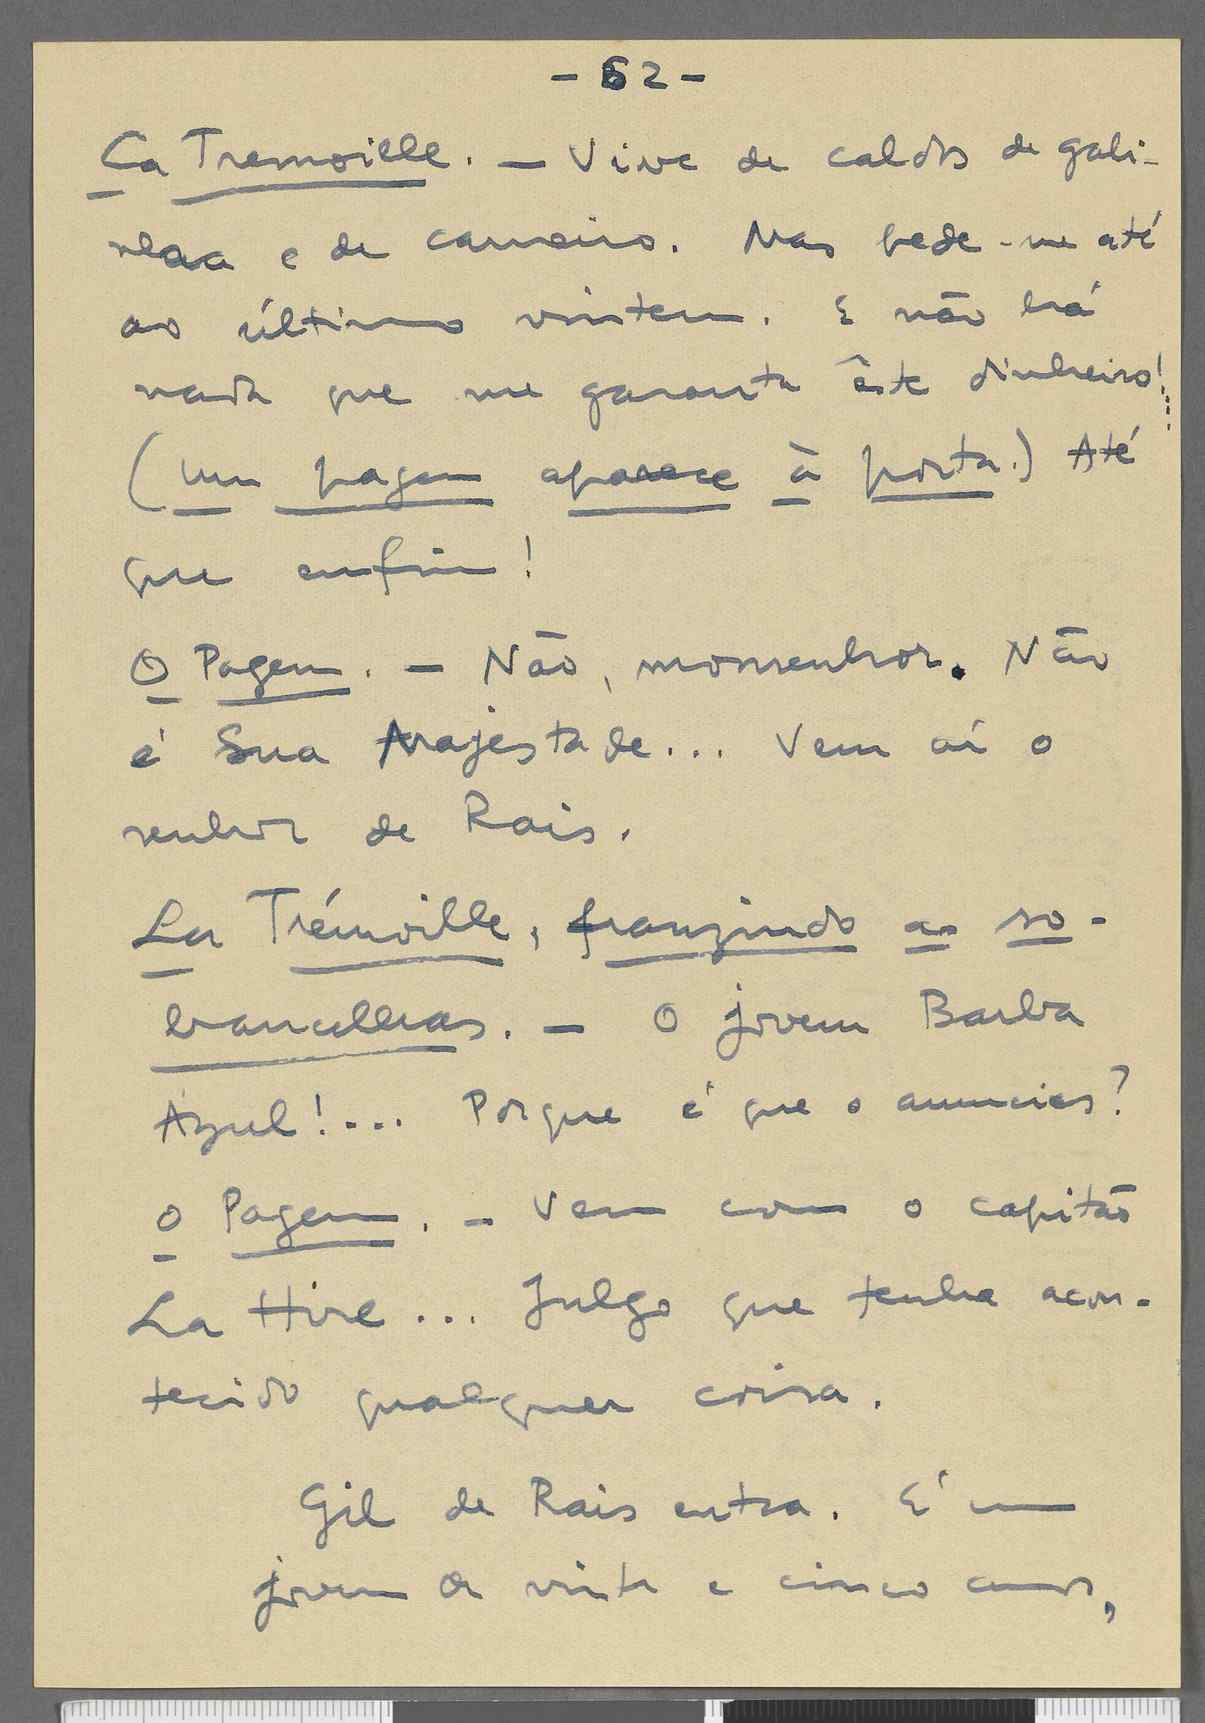 - 62 -
La Tremoille. - Vive de caldos de gali-
nha e de carneiro. Mas pede-me até
ao último vintem. E não há
nada que me garanta êste dinheiro!...
(Um pagem aparece à porta.) Até
que enfim!
O Pagem. - Não, monsenhor. Não
é Sua Majestade... Vem aí o
senhor de Rais.
La Trémoille, franzindo as so-
brancelhas. - O jovem Barba
Azul!... Porque é que o anuncias?
O Pagem. - Vem com o capitão
La Hire... Julgo que tenha acon-
tecido qualquer coisa.
Gil de Rais entra. É um
jovem de vinte e cinco anos,